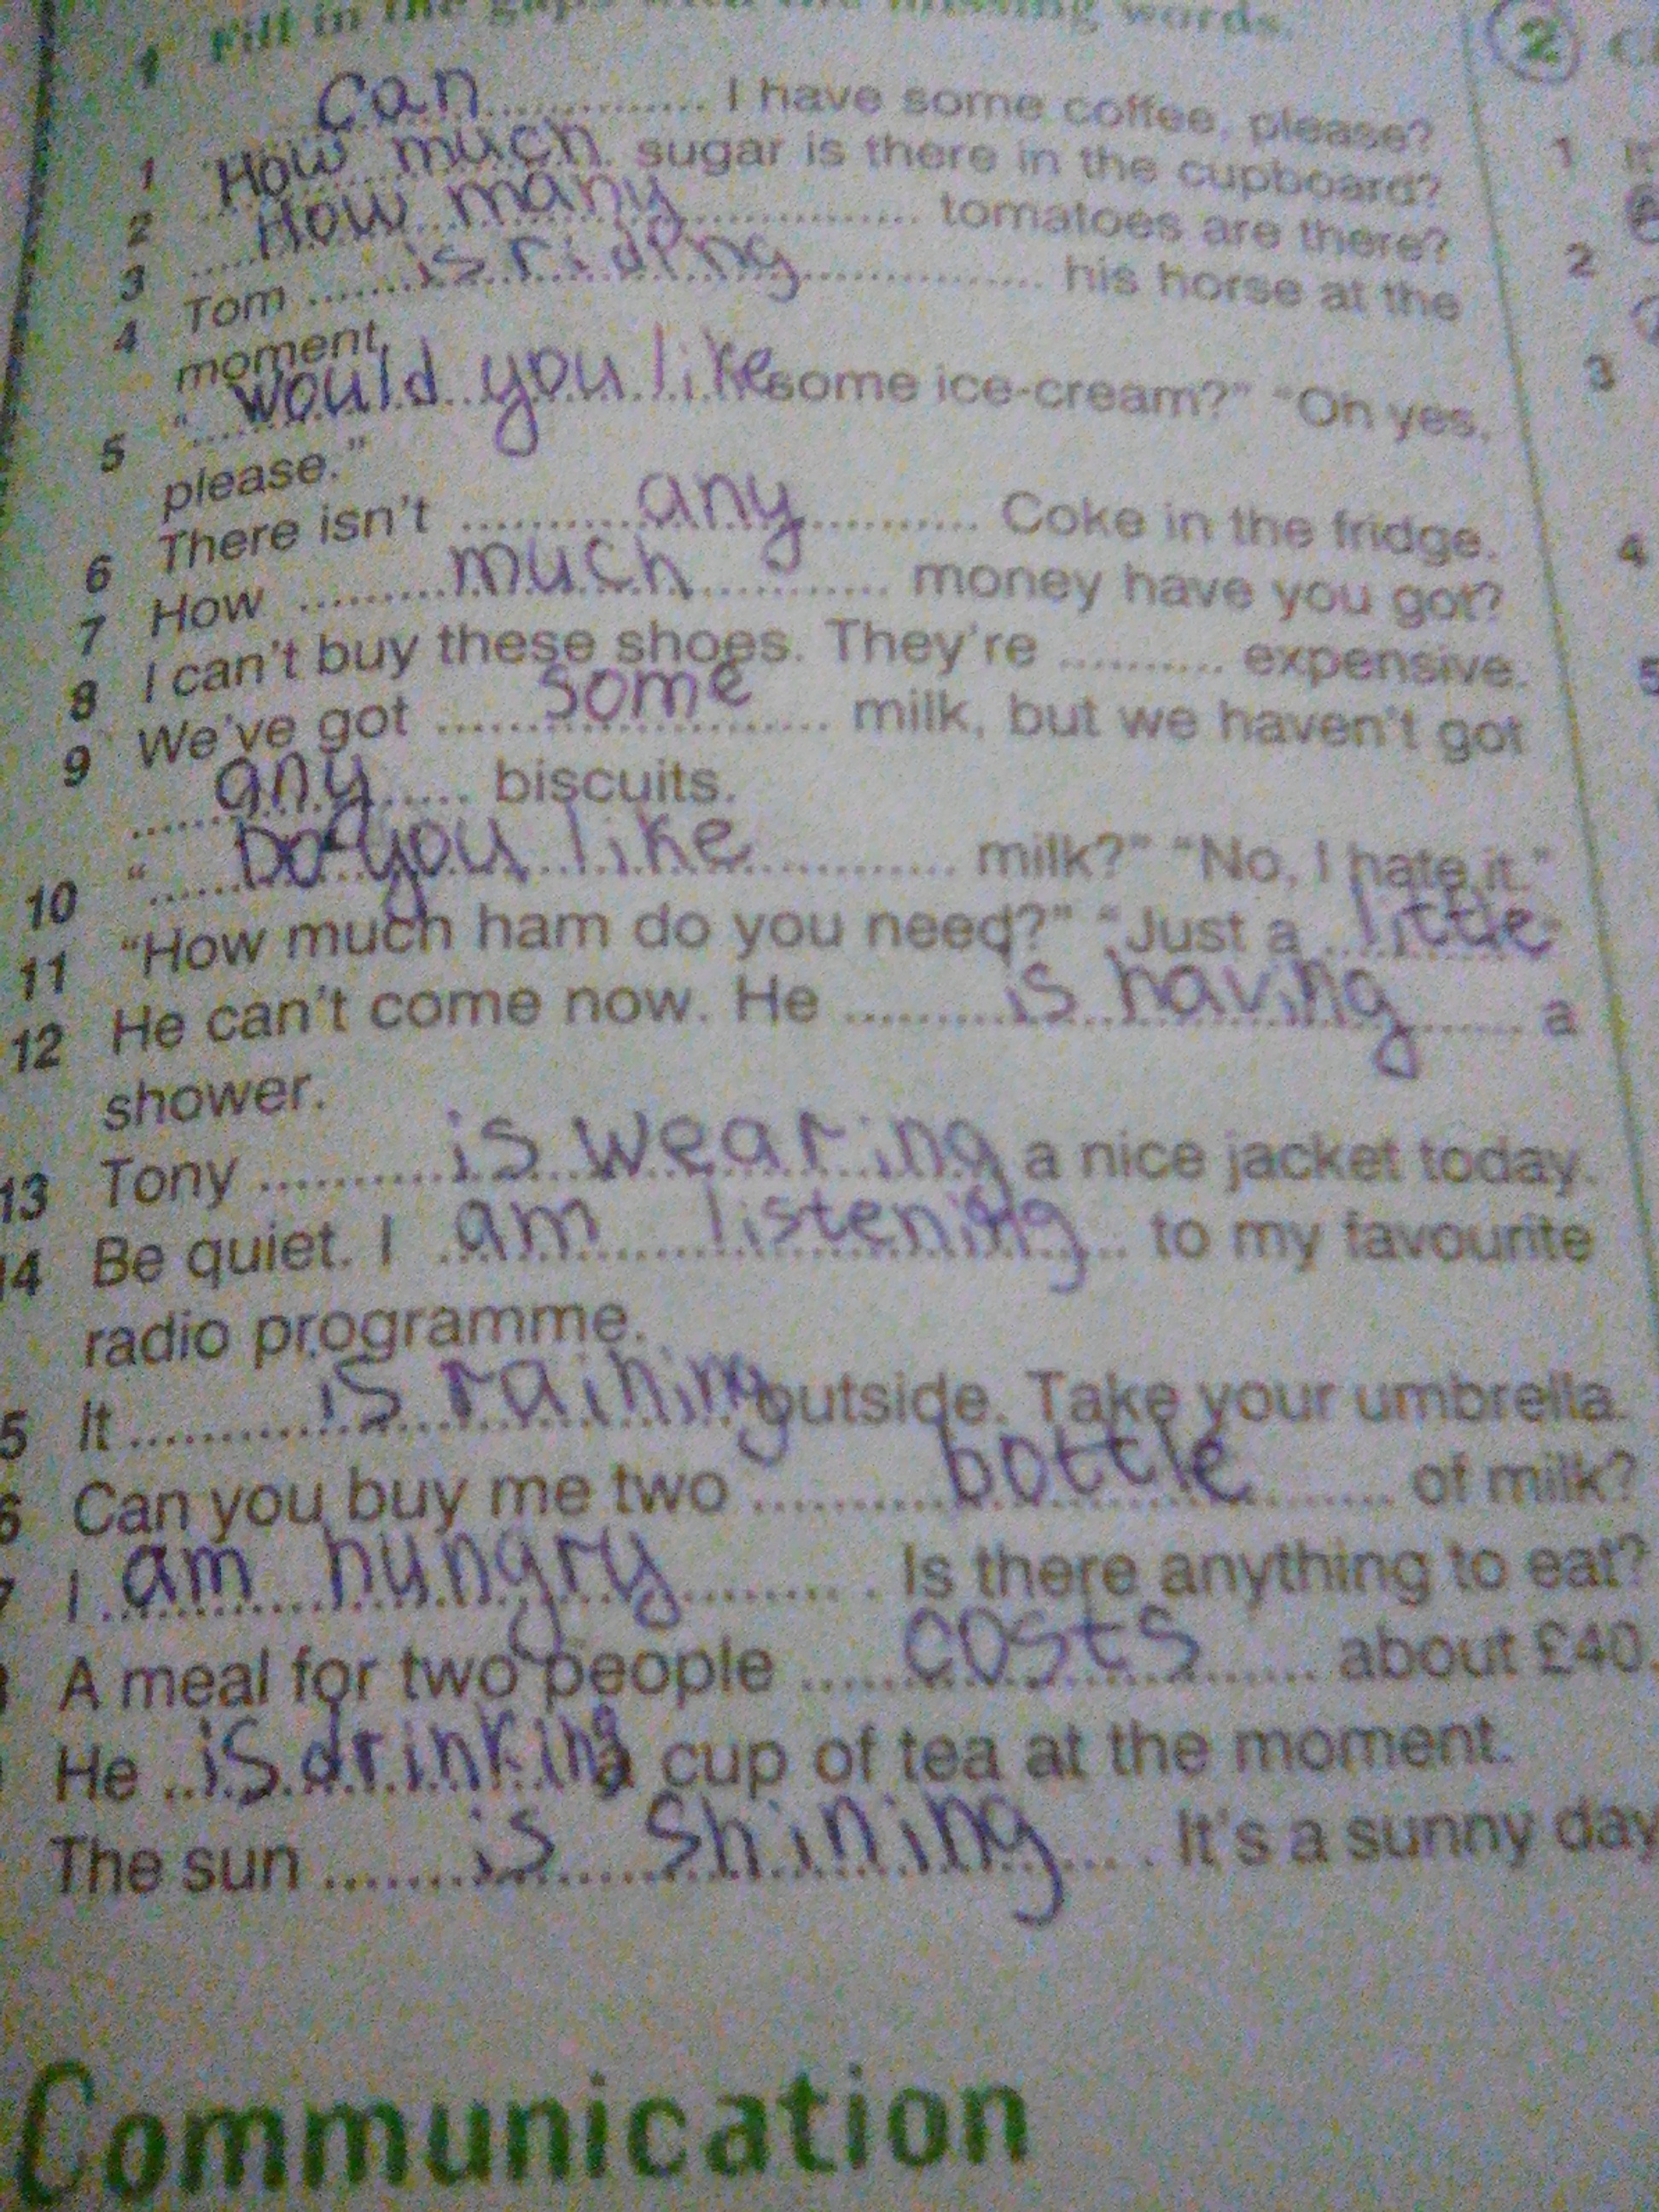 1 Fill in the gaps with the missing words.
1 Can ............ I have some coffee, please?
2 How much sugar is there in the cupboard?
3 How many ............ tomatoes are there?
4 Tom ...... is riding ............ his horse at the
moment.
5 "would you like some ice-cream?" "Oh yes,
please."
6 There isn't ......... any ......... Coke in the fridge.
7 How ......... much ......... money have you got?
8 I can't buy these shoes. They're .......... expensive.
9 We've got ...... some ...... milk, but we haven't got
...... any ...... biscuits.
10 "...... Do you like ............ milk?" "No, I hate it."
11 "How much ham do you need?" "Just a ... little
12 He can't come now. He ......... is having ...... a
shower.
13 Tony .......... is wearing a nice jacket today.
14 Be quiet. I am listening ... to my favourite
radio programme.
5 It .......... is raining outside. Take your umbrella.
6 Can you buy me two .......... bottle ......... of milk?
7 I am hungry ......... . Is there anything to eat?
A meal for two people ...... costs ...... about £40.
He ... is drinking a cup of tea at the moment.
The sun ........ is shining ... . It's a sunny day
Communication
2
1
2
3
4
5